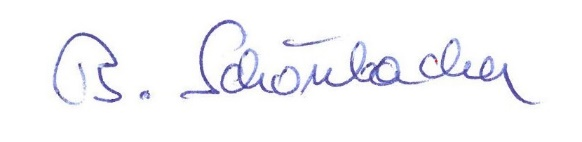 B. Schönbacher